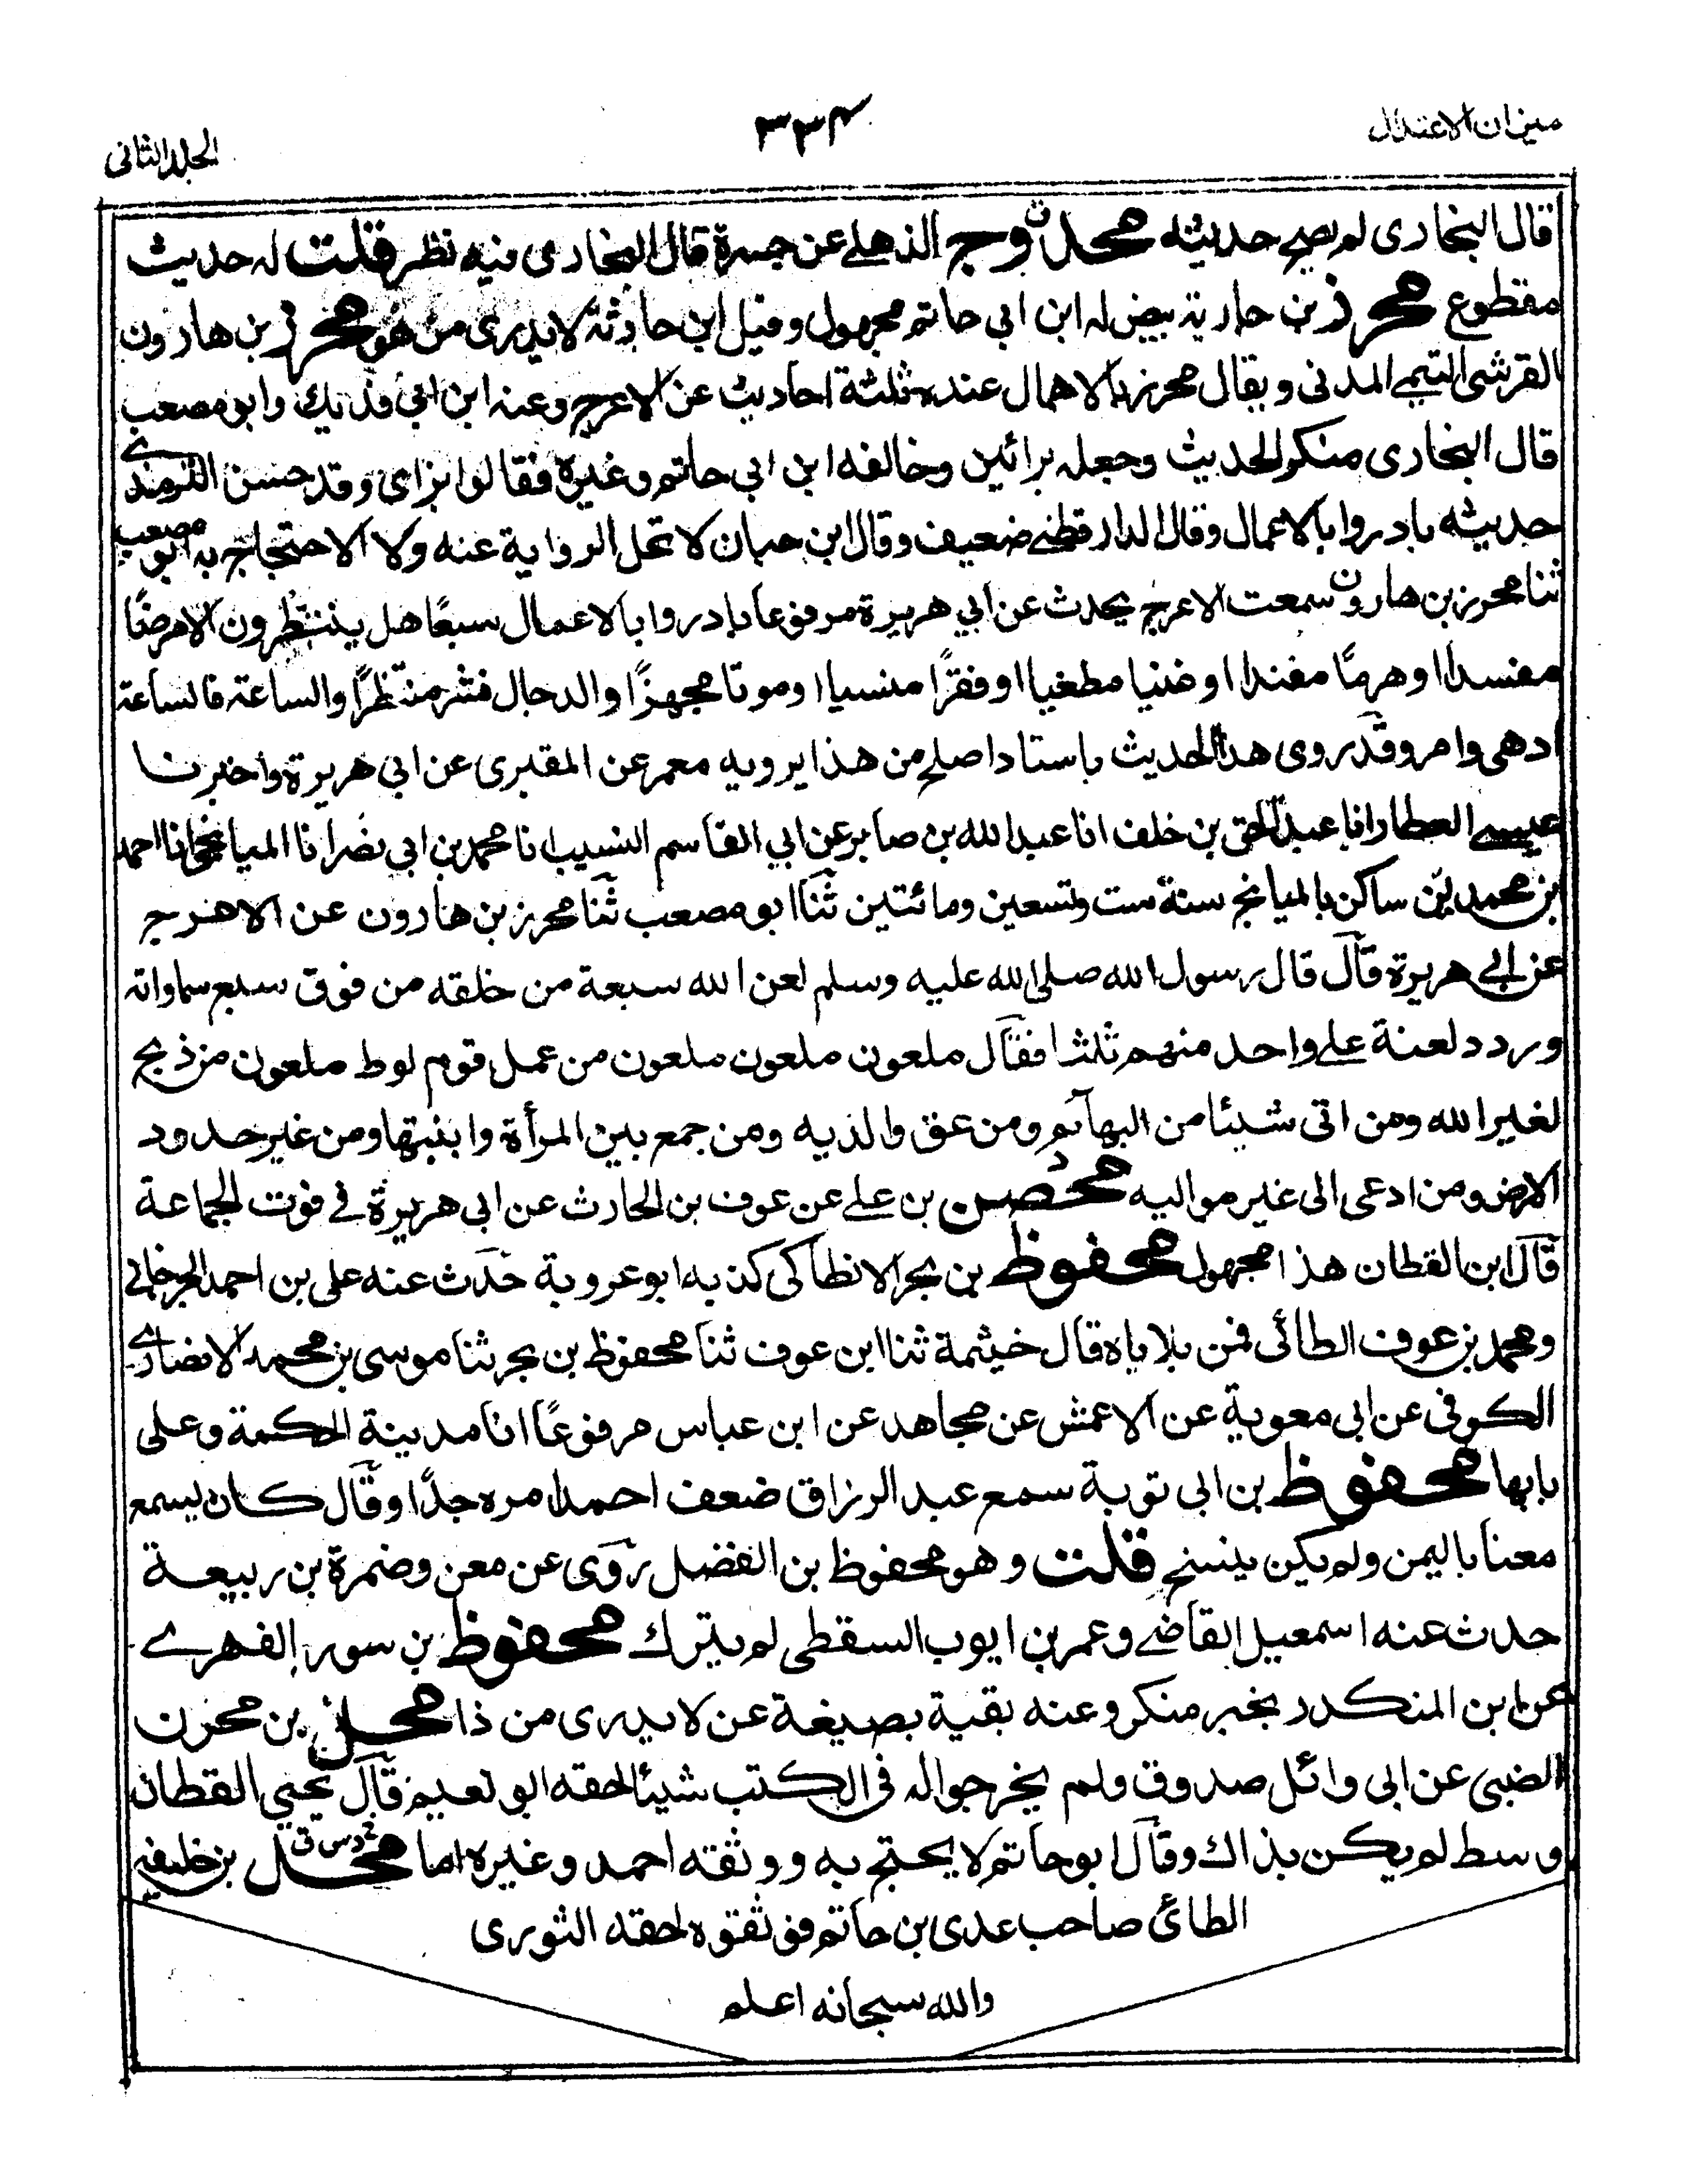 ميزان الاعتدال
٣٣٤
الجلد الثانى
قال البخارى لم يصح حديثه محدوج الذهلى عن جسرة قال البخارى فيه نظر قلت له حديث
مقطوع محرز بن حارثة بيض له ابن ابى حاتم مجهول وقيل ابن حارثة لا يدرى من هو محرز بن هارون
القرشى التيمى المدنى ويقال محرر بالاهمال عنده ثلثة احاديث عن الاعرج وعنه ابن ابى فديك وابو مصعب
قال البخارى منكر الحديث وجعله برائين وخالفه ابن ابى حاتم وغيره فقالوا بزاى وقد حسن الترمذى
حديثه بادروا بالاعمال وقال الدارقطنى ضعيف وقال ابن حبان لا تحل الرواية عنه ولا الاحتجاج به ابو مصعب
ثنا محرز بن هارون سمعت الاعرج يحدث عن ابي هريرة مرفوعا بادروا بالاعمال سبعًا هل ينتظرون الا مرضًا
مفسدا او هرمًا مفندا او غنيا مطغيا او فقرًا منسيا او موتا مجهزًا والدجال فشر منتظرًا والساعة فالساعة
ادهى وامر وقد روى هذا الحديث باسناد اصلح من هذا يرويه معمر عن المقبرى عن ابي هريرة واخبرنا
عيسى العطار انا عبد الحق بن خلف انا عبد الله بن صابر عن ابي القاسم النسيب انا محمد بن ابي نصر انا الميانجى انا احمد
بن محمد بن ساكن بالميانج سنة ست وتسعين ومائتين ثنا ابو مصعب ثنا محرز بن هارون عن الاعرج
عن ابى هريرة قال قال رسول الله صلى الله عليه وسلم لعن الله سبعة من خلقه من فوق سبع سماواته
وردد لعنة على واحد منهم ثلثا فقال ملعون ملعون ملعون من عمل قوم لوط ملعون من ذبح
لغير الله ومن اتى شيئا من البهائم ومن عق والديه ومن جمع بين المرأة وابنتها ومن غير حدود
الارض ومن ادعى الى غير مواليه محصن بن على عن عوف بن الحارث عن ابي هريرة فى فوت الجماعة
قال ابن القطان هذا مجهول محفوظ بن بحر الانطاكى كذبه ابو عروبة حدث عنه على بن احمد الجرجانى
ومحمد بن عوف الطائى فمن بلاياه قال خيثمة ثنا ابن عوف ثنا محفوظ بن بحر ثنا موسى بن محمد الانصارى
الكوفى عن ابى معوية عن الاعمش عن مجاهد عن ابن عباس مرفوعًا انا مدينة الحكمة وعلى
بابها محفوظ بن ابى توبة سمع عبد الرزاق ضعف احمد امره جدًا وقال كان يسمع
معنا باليمن ولم يكن ينسخ قلت وهو محفوظ بن الفضل روى عن معن وضمرة بن ربيعة
حدث عنه اسمعيل القاضى وعمر بن ايوب السقطى لم يترك محفوظ بن سور الفهرى
عن ابن المنكدر بخبر منكر وعنه بقية بصيغة عن لا يدرى من ذا محل بن محرز
الضبى عن ابى وائل صدوق ولم يخرجوا له فى الكتب شيئا لحقه ابو نعيم قال يحيي القطان
وسط لم يكن بذاك وقال ابو حاتم لا يحتج به ووثقه احمد وغيره اما محل بن خليفة
الطائى صاحب عدى بن حاتم فوثقوه لحقه الثورى
والله سبحانه اعلم